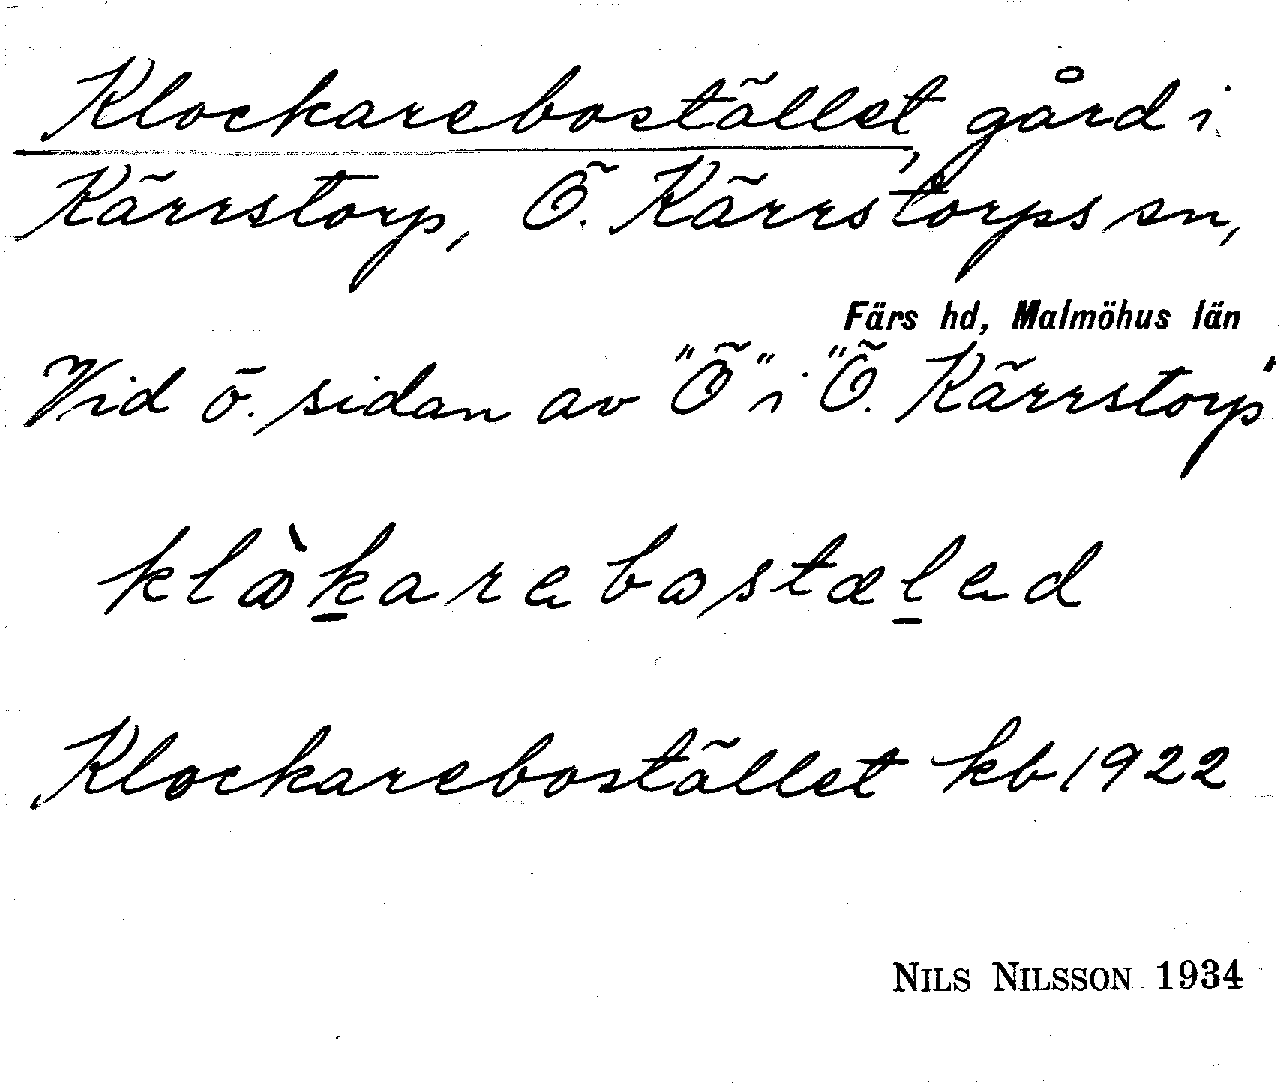 Klockarebostället, gård i
Kärrstorp, Ö. Kärrstorps sn,
Färs hd, Malmöhus län
Vid ö. sidan av "Ö" i "Ö. Kärrstorp"
Klockarebostället kb 1922
NILS NILSSON 1934